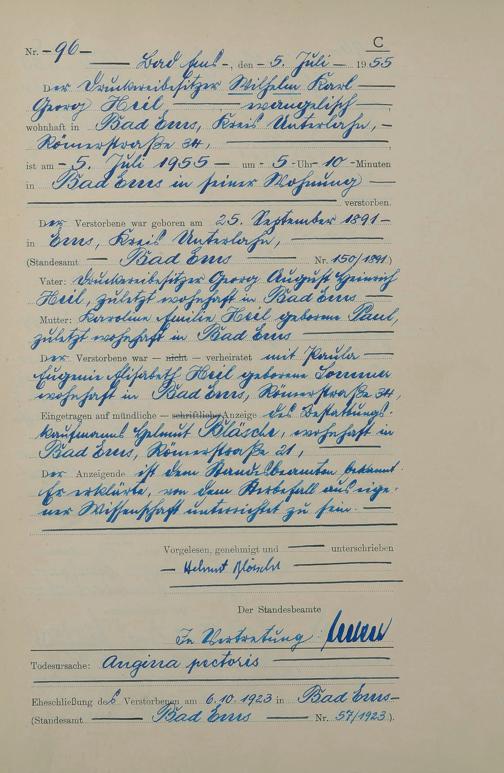 C
Nr. - 96 -
Bad Ems -, den - 5. Juli - 1955
Der Druckereibesitzer Wilhelm Karl
Georg Heil, evangelisch,
wohnhaft in Bad Ems, Kreis Unterlahn, -
Römerstraße 34,
ist am - 5. Juli 1955 - um - 5 - Uhr - 10 - Minuten
in Bad Ems in seiner Wohnung
verstorben.
Der Verstorbene war geboren am 25. September 1891 -
in Ems, Kreis Unterlahn,
(Standesamt Bad Ems Nr. 150/1891.)
Vater: Druckereibesitzer Georg August Heinrich
Heil, zuletzt wohnhaft in Bad Ems
Mutter: Karoline Emilie Heil geborene Paul,
zuletzt wohnhaft in Bad Ems
Der Verstorbene war - nicht - verheiratet mit Paula
Eugenie Elisabeth Heil geborene Sommer
wohnhaft in Bad Ems, Römerstraße 34,
Eingetragen auf mündliche - schriftliche Anzeige des Bestattungs-
kaufmanns Helmut Bläsche, wohnhaft in
Bad Ems, Römerstraße 21,
Der Anzeigende ist dem Standesbeamten bekannt.
Er erklärte, von dem Sterbefall aus eige-
ner Wissenschaft unterrichtet zu sein. -
Vorgelesen, genehmigt und unterschrieben
- Helmut Bläsche
Der Standesbeamte
In Vertretung:
Todesursache: Angina pectoris
Eheschließung des Verstorbenen am 6.10.1923 in Bad Ems -
(Standesamt Bad Ems Nr. 57/1923.)